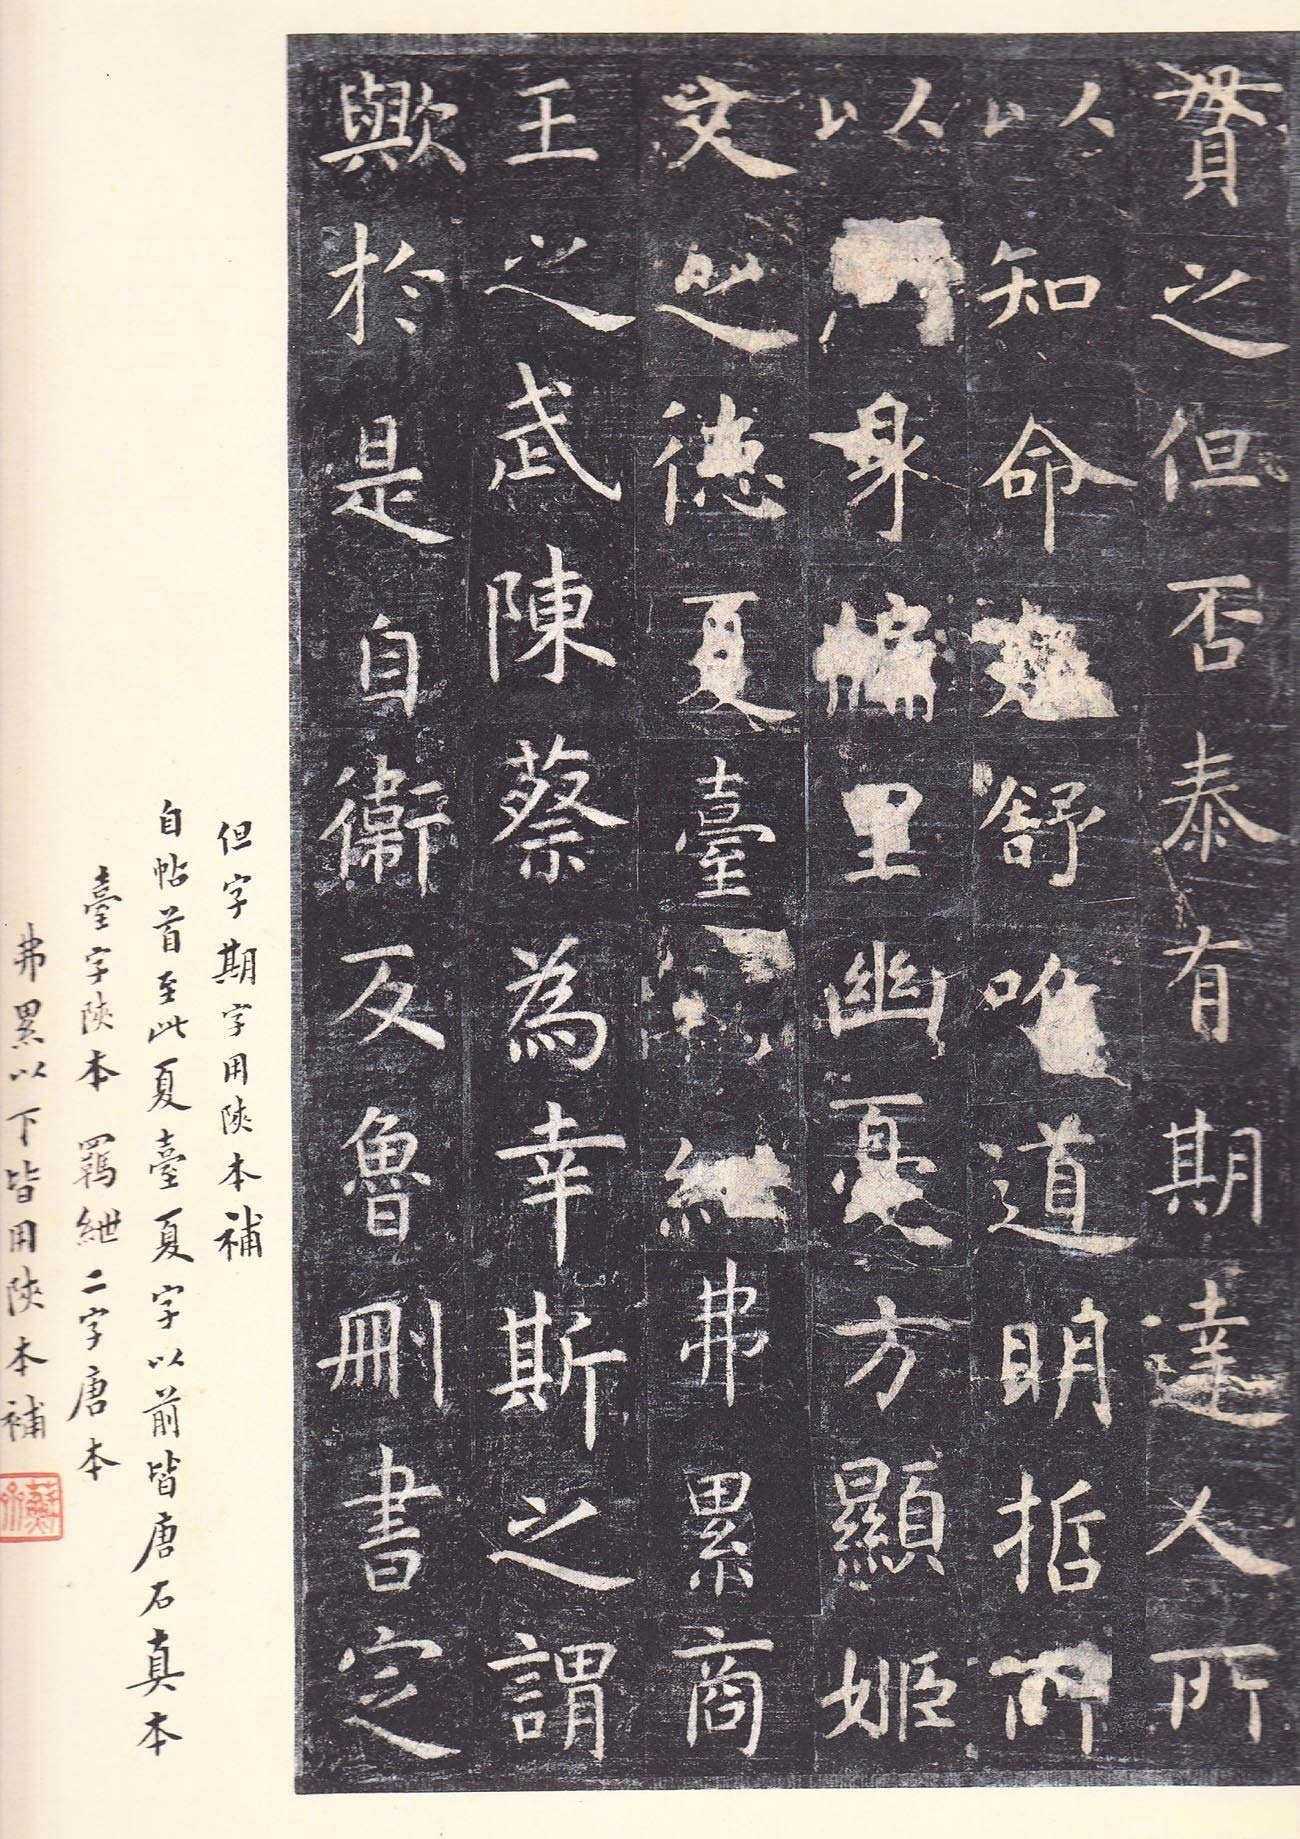 貫之但否泰有期達人所
以知命卷舒唯道明哲所
以身牖里幽憂方顯姬
文之德夏臺紲弗累商
王之武陳蔡為幸斯之謂
歟於是自衛反魯刪書定
但字期字用陝本補
自帖首至此夏臺夏字以前皆唐石真本
臺字陝本 羈紲二字唐本
弗累以下皆用陝本補